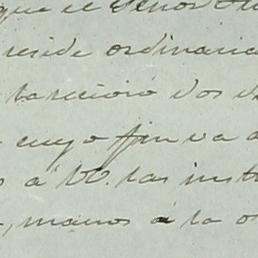 que el Señor
reside ordinaria
la recivio dos d
cuyo fin va a
a VV. las inst
, manos a la o